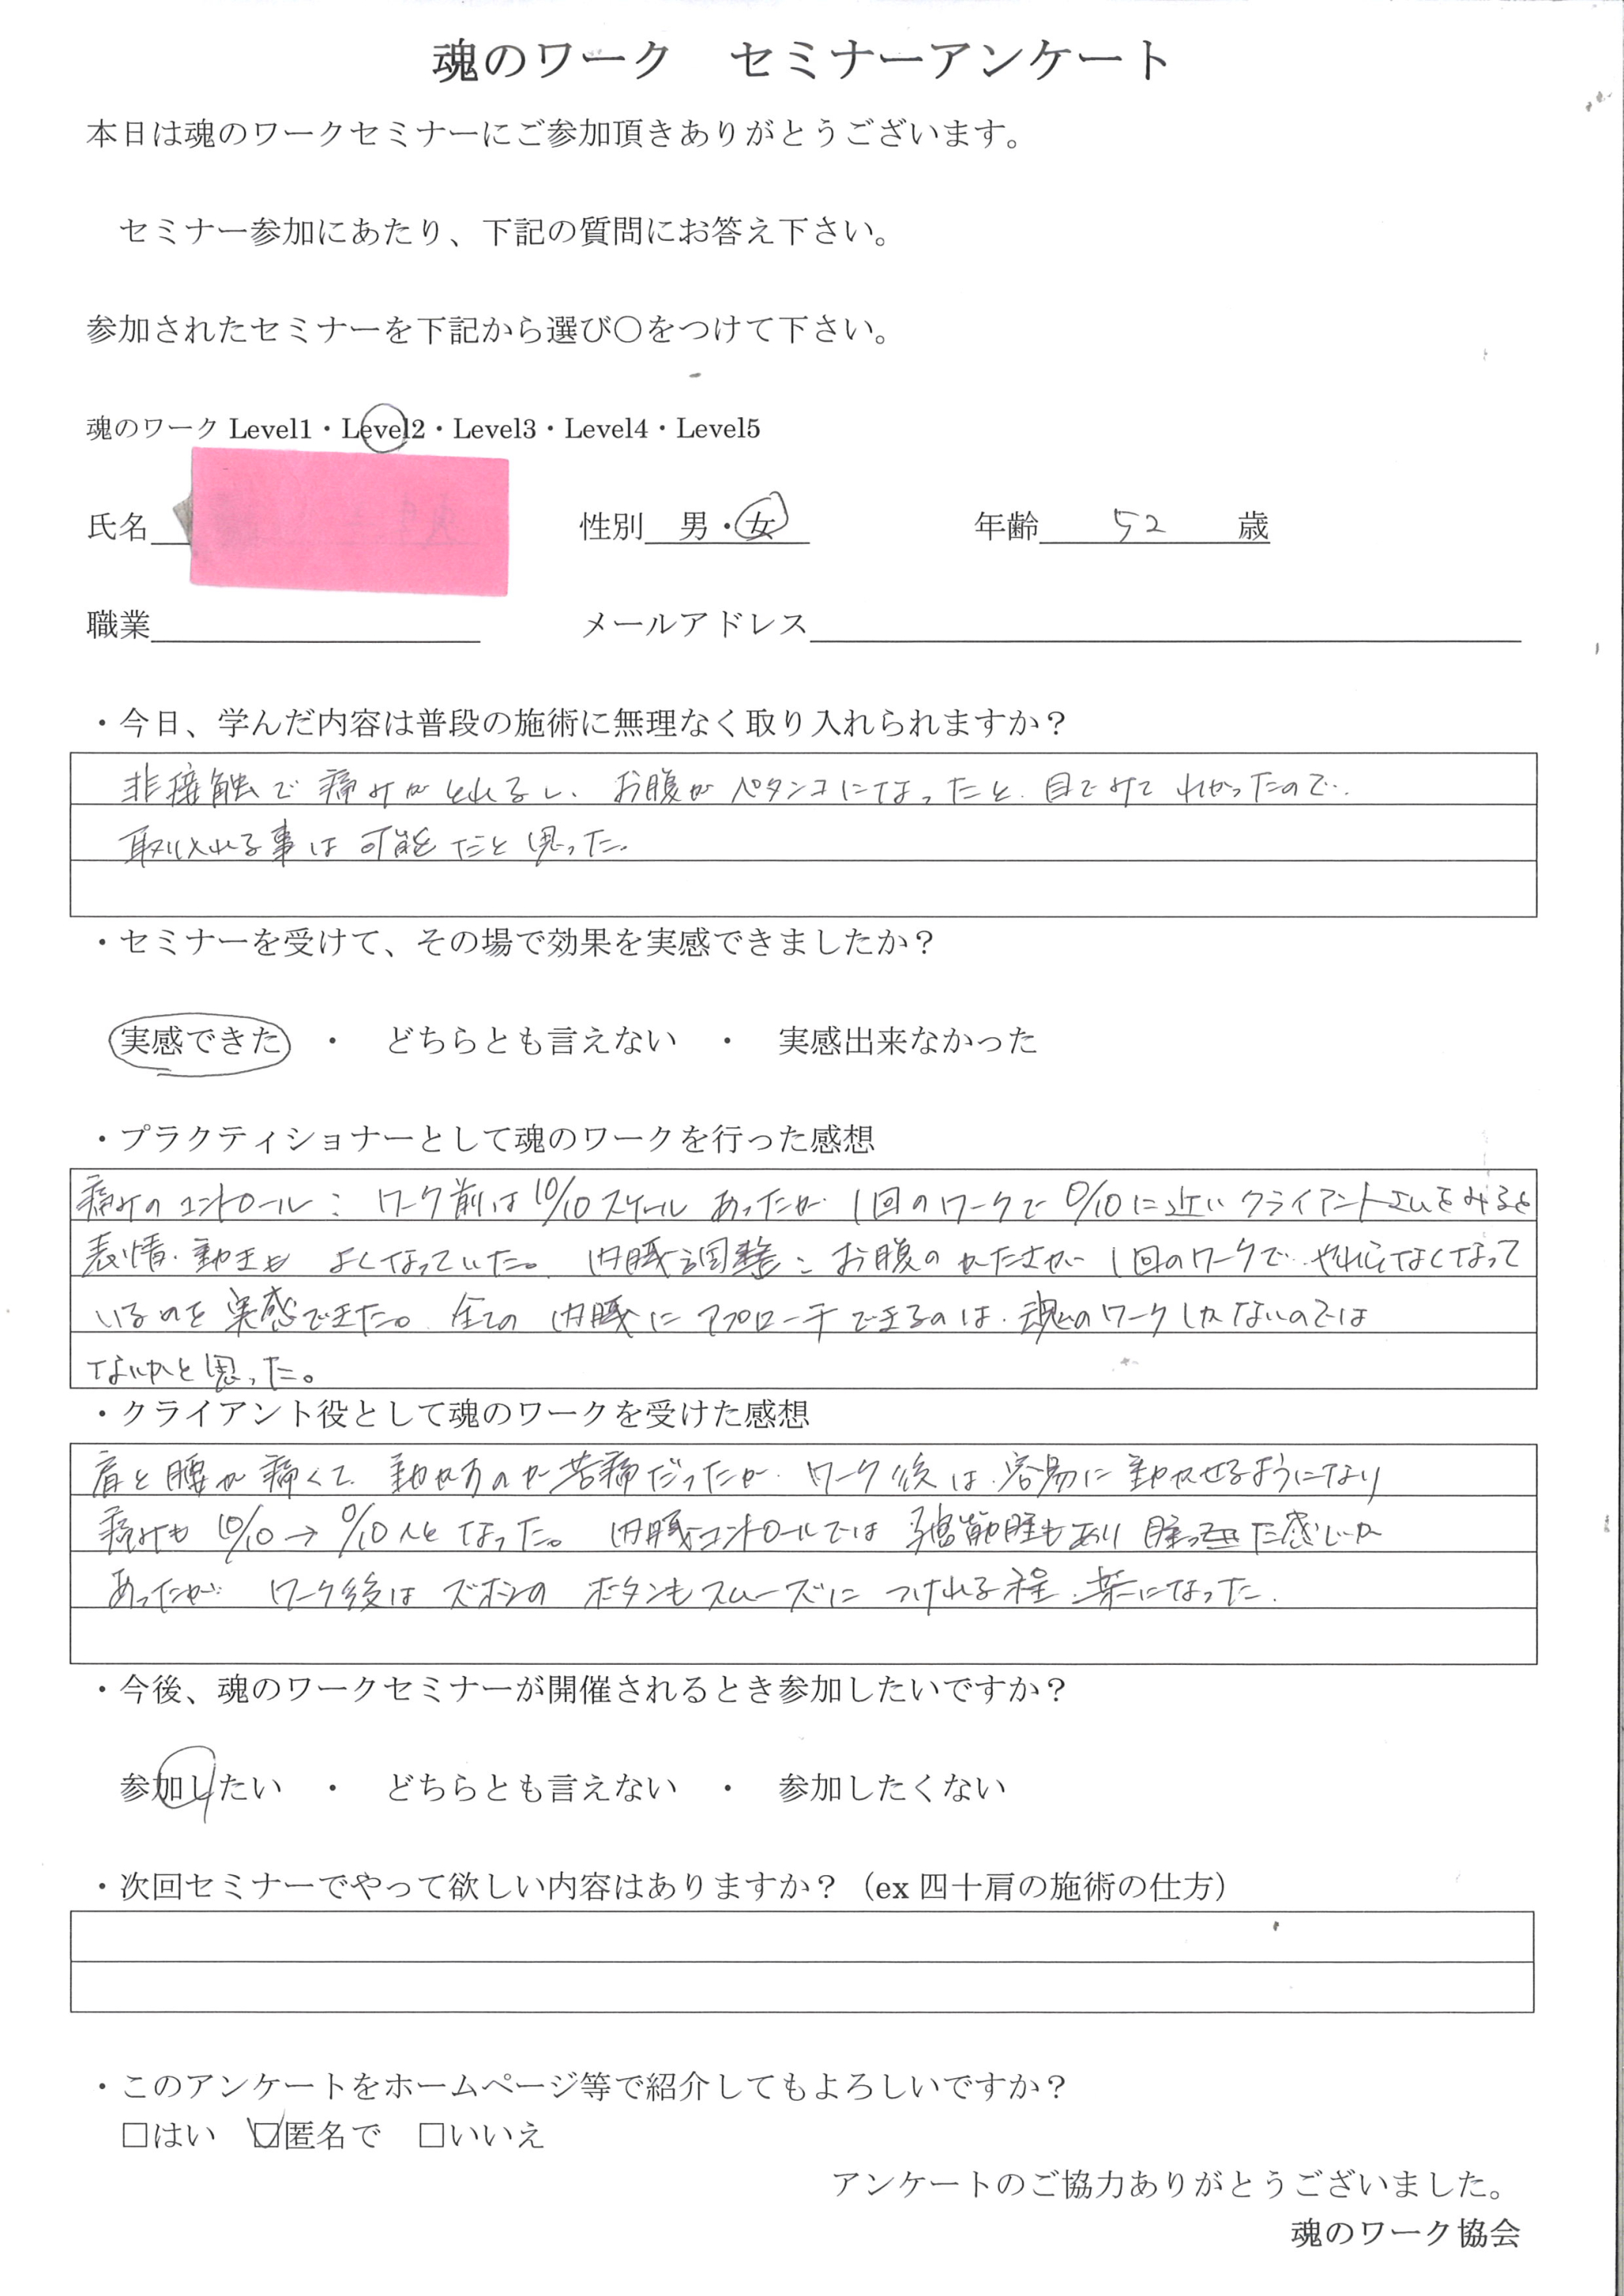 魂のワーク　セミナーアンケート
本日は魂のワークセミナーにご参加頂きありがとうございます。
セミナー参加にあたり、下記の質問にお答え下さい。
参加されたセミナーを下記から選び〇をつけて下さい。
魂のワーク Level1・Level2・Level3・Level4・Level5
氏名　性別　男・女　年齢　52　歳
職業　メールアドレス
・今日、学んだ内容は普段の施術に無理なく取り入れられますか？
非接触で痛みがとれるし、お腹がペタンコになったと、目でみてわかったので、
取り入れる事は可能だと思った。
・セミナーを受けて、その場で効果を実感できましたか？
実感できた　・　どちらとも言えない　・　実感出来なかった
・プラクティショナーとして魂のワークを行った感想
痛みのコントロール：ワーク前は10/10スケールあったが1回のワークで0/10に近いクライアントさんをみると
表情、動きもよくなっていた。内臓調整：お腹のかたさが1回のワークでやわらかくなって
いるのを実感できた。全ての内臓にアプローチできるのは、魂のワークしかないのでは
ないかと思った。
・クライアント役として魂のワークを受けた感想
肩と腰が痛くて動かすのが苦痛だったが、ワーク後は、容易に動かせるようになり
痛みも10/10→0/10へとなった。内臓コントロールでは子宮筋腫もあり腫った感じが
あったが、ワーク後はズボンのボタンもスムーズにつけれる程、楽になった。
・今後、魂のワークセミナーが開催されるとき参加したいですか？
参加したい　・　どちらとも言えない　・　参加したくない
・次回セミナーでやって欲しい内容はありますか？（ex 四十肩の施術の仕方）
・このアンケートをホームページ等で紹介してもよろしいですか？
□はい　☑匿名で　□いいえ
アンケートのご協力ありがとうございました。
魂のワーク協会